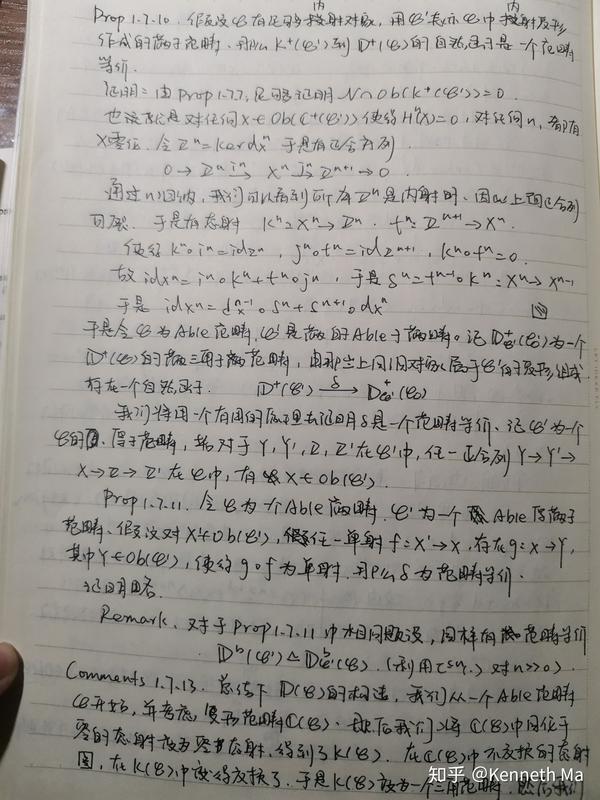 Prop 1.7.10. 假设 𝒞 有足够多内射对象, 用 𝒞' 表示 𝒞 中内射对象
作成的满子范畴. 那么 K⁺(𝒞') 到 D⁺(𝒞) 的自然函子是一个范畴
等价.
证明: 由 Prop 1.7.7, 足够证明 N∩Ob(K⁺(𝒞'))=0.
也就是对任何 X∈Ob(C⁺(𝒞')) 使得 Hⁿ(X)=0, 对任何 n, 都有
X零伦. 令 Zⁿ=Ker dₓⁿ 于是有正合列
0→Zⁿ →(iⁿ) Xⁿ →(jⁿ) Zⁿ⁺¹→0.
通过 n 归纳, 我们可以看到所有 Zⁿ 是内射的. 因此上面正合列
可裂. 于是有态射 kⁿ: Xⁿ→Zⁿ. tⁿ: Zⁿ⁺¹→Xⁿ.
使得 kⁿ∘iⁿ=id_Zⁿ, jⁿ∘tⁿ=id_Zⁿ⁺¹, kⁿ∘tⁿ=0.
故 id_Xⁿ=iⁿ∘kⁿ+tⁿ∘jⁿ, 于是 sⁿ=tⁿ⁻¹∘kⁿ: Xⁿ→Xⁿ⁻¹
于是 id_Xⁿ=dₓⁿ⁻¹∘sⁿ+sⁿ⁺¹∘dₓⁿ
于是令 𝒞 为 Able 范畴, 𝒞' 是满的 Able 子范畴. 记 D⁺_𝒞'(𝒞) 为一个
D⁺(𝒞) 的满三角子范畴, 由那些上同调对象属于 𝒞' 的复形组成
存在一个自然函子. D⁺(𝒞') →(δ) D⁺_𝒞'(𝒞)
我们将用一个有用的来证明 δ 是一个范畴等价. 记 𝒞' 为一个
𝒞 的厚子范畴, 若对于 Y, Y', Z, Z' 在 𝒞' 中, 任一正合列 Y→Y'→
X→Z→Z' 在 𝒞 中, 有 X∈Ob(𝒞').
Prop 1.7.11. 令 𝒞 为一个 Able 范畴, 𝒞' 为一个 Able 厚满子
范畴. 假设对 X'∈Ob(𝒞'), 任一单射 f: X'→X, 存在 g: X→Y,
其中 Y∈Ob(𝒞'), 使得 g∘f 为单射. 那么 δ 为范畴等价.
证明略.
Remark. 对于 Prop 1.7.11 中相同假设, 同样有范畴等价
Dᵇ(𝒞')≃Dᵇ_𝒞'(𝒞). (利用 τ≤n.) 对 n≫0).
Comments 1.7.13. 总结下 D(𝒞) 的构造, 我们从一个 Able 范畴
𝒞 开始, 并考虑复形范畴 C(𝒞). 然后我们将 C(𝒞) 中同伦于
零的态射改为零态射, 得到了 K(𝒞). 在 C(𝒞) 中不交换的态射
图, 在 K(𝒞) 中变得交换了. 于是 K(𝒞) 成为一个三角范畴. 然后我们
知乎 @Kenneth Ma